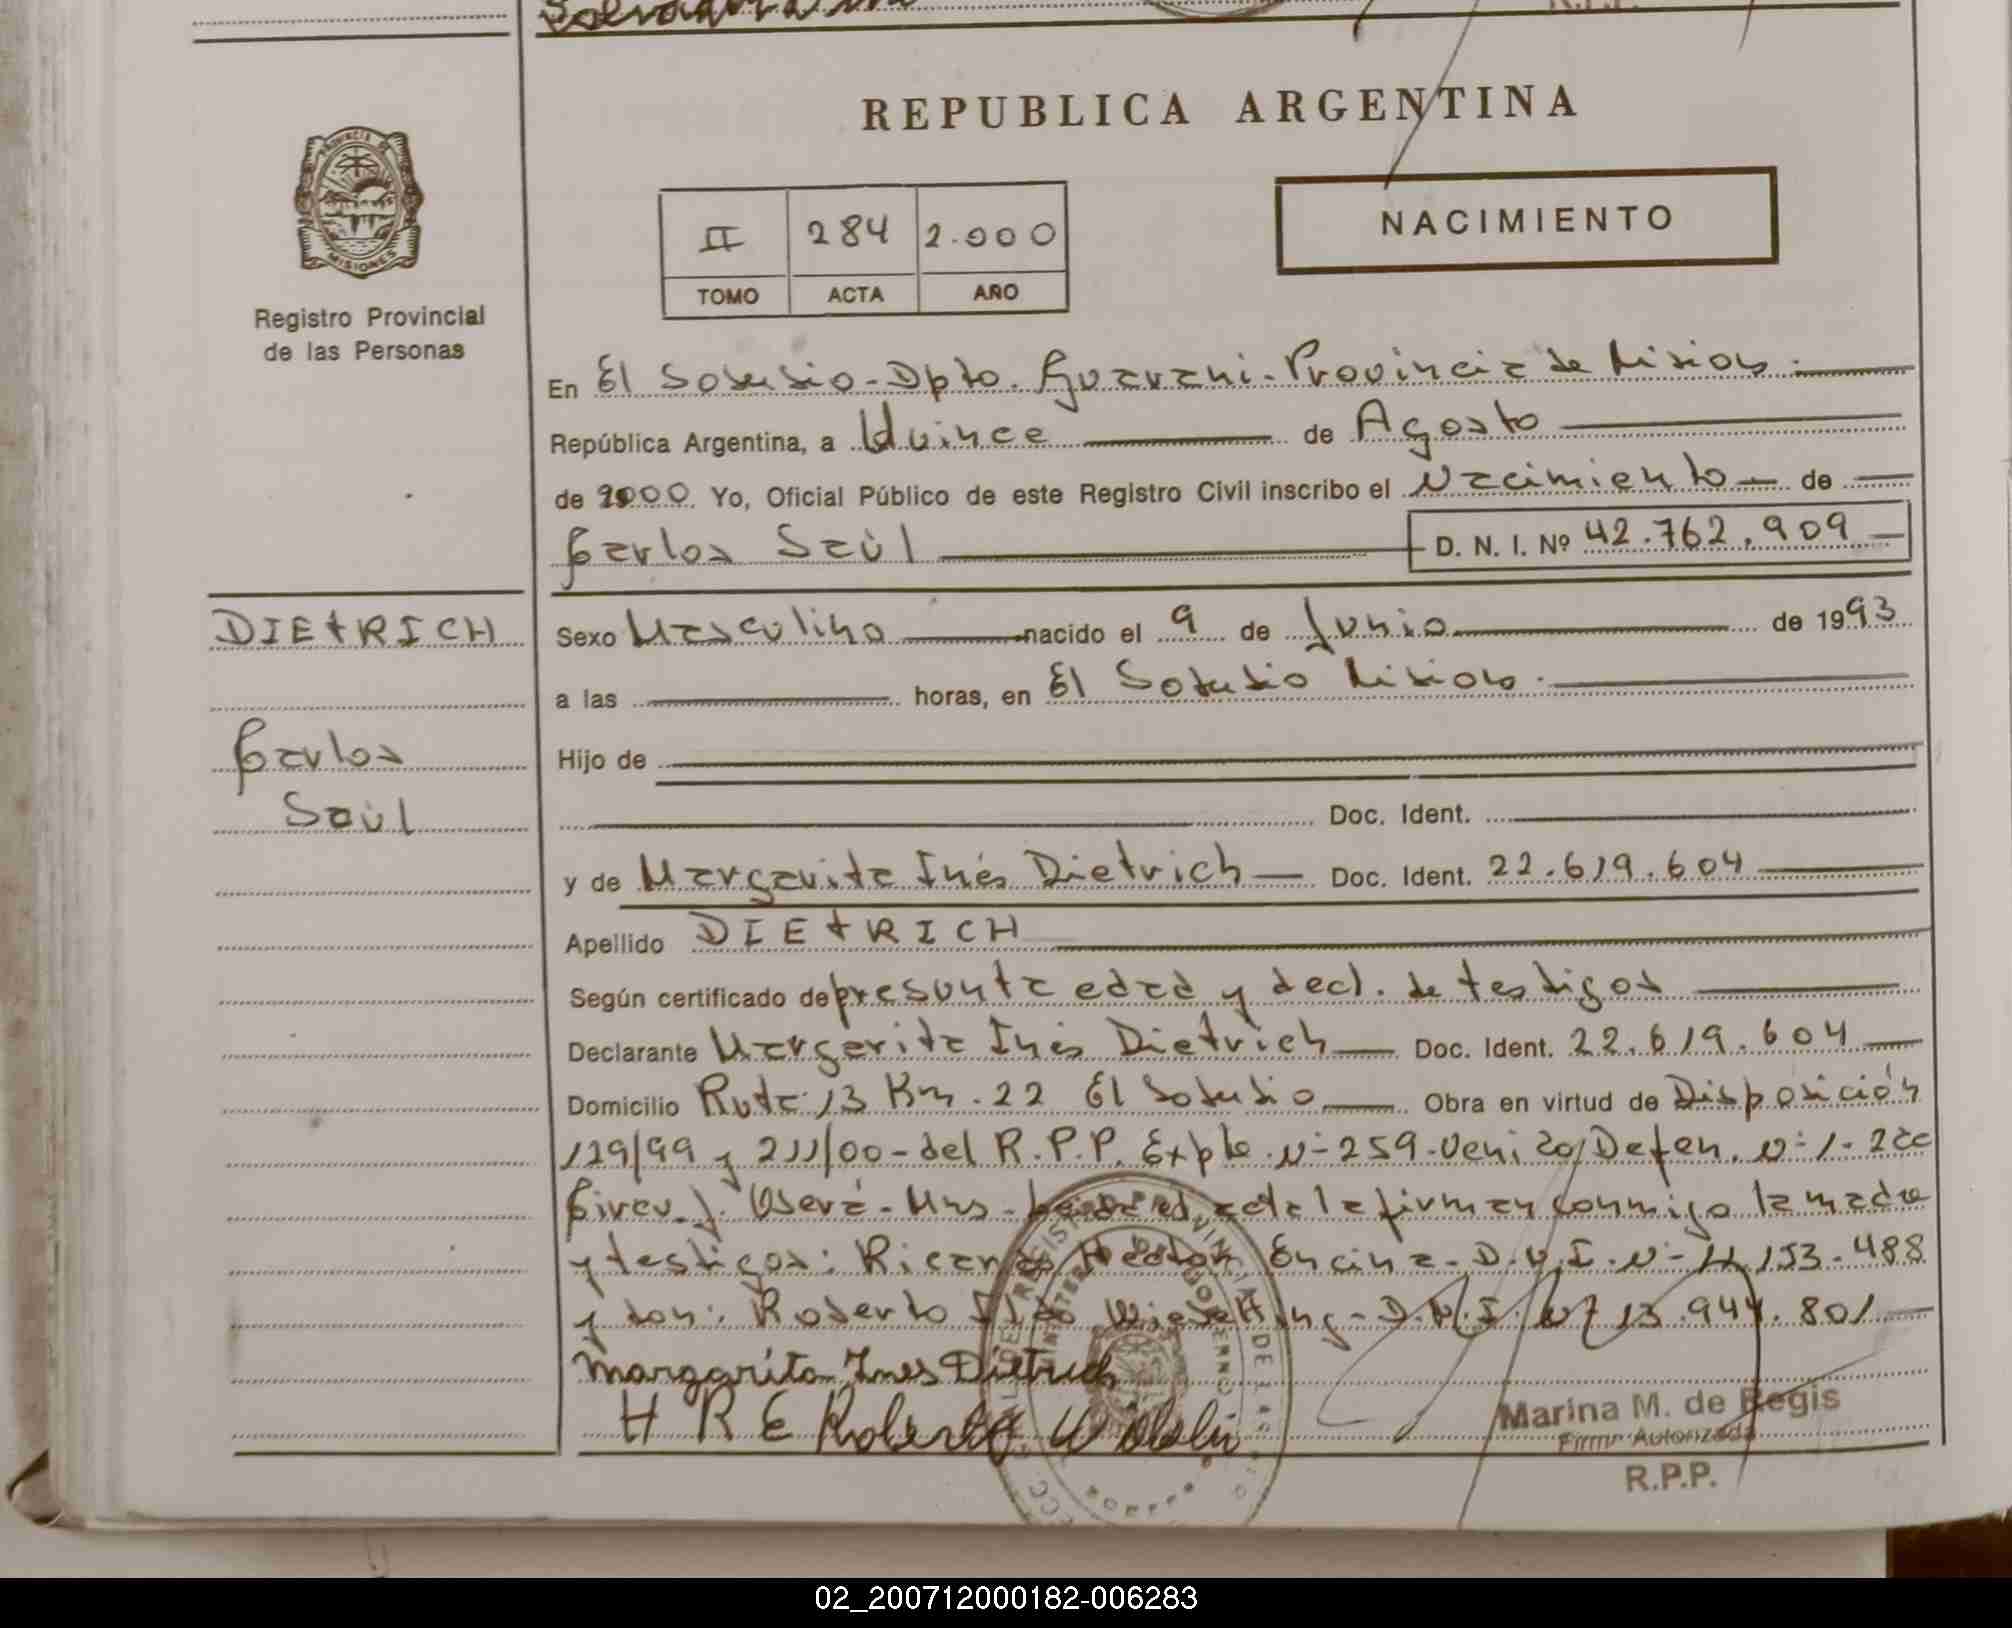 REPUBLICA ARGENTINA
PROVINCIA DE
MISIONES
Registro Provincial
de las Personas
II 284 2.000
TOMO ACTA AÑO
NACIMIENTO
En El Soberbio - Dpto. Guarani - Provincia de Misiones.
República Argentina, a Quince de Agosto
de 2000 Yo, Oficial Público de este Registro Civil inscribo el Nacimiento de
Carlos Saúl D. N. I. Nº 42.762.909
DIEtRICH
Carlos
Saúl
Sexo Masculino nacido el 9 de Junio de 1993
a las horas, en El Soberbio Misiones.
Hijo de
Doc. Ident.
y de Margarita Inés Dietrich Doc. Ident. 22.619.604
Apellido DIEtRICH
Según certificado de presunta edad y decl. de testigos
Declarante Margarita Inés Dietrich Doc. Ident. 22.619.604
Domicilio Ruta 13 Km. 22 El Soberbio Obra en virtud de Disposición
129/99 y 211/00 - del R.P.P. Expte. Nº 259. Defen. Nº 1 - 2da
Circu. J. Oberá - Mns - acta la firman conmigo la madre
y testigos: Ricardo Hector Encina - D.N.I. Nº 11.153.488
y don: Roberto D.N.I. Nº 13.944.801
Margarita Ines Dietrich
H R E Roberto
Marina M. de Regis
Firma Autorizada
R.P.P.
02_200712000182-006283